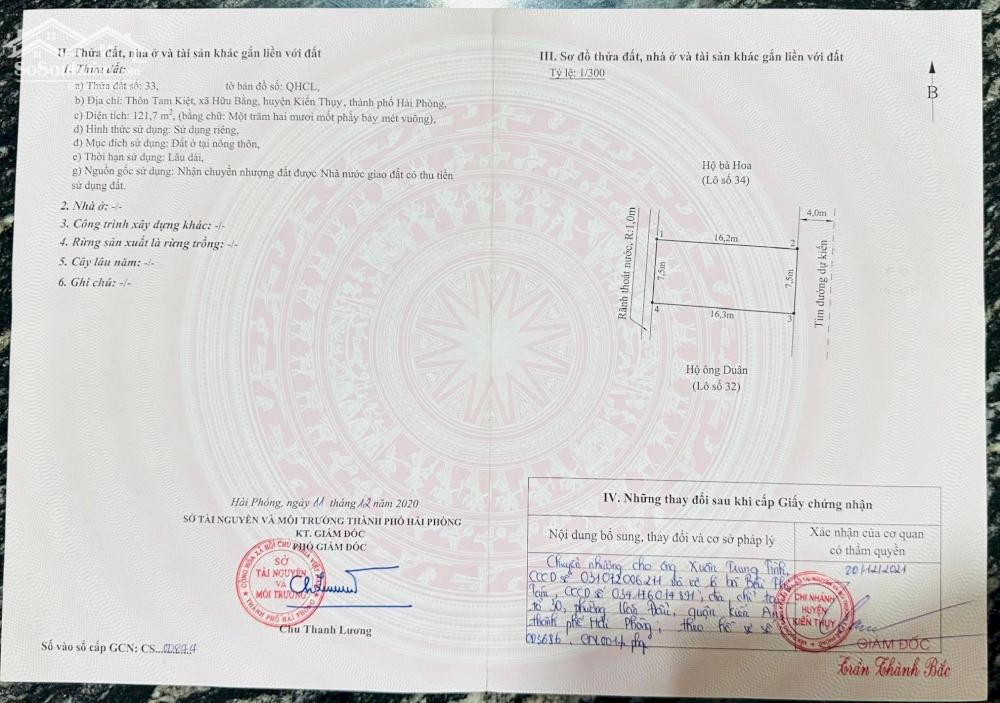 II. Thửa đất, nhà ở và tài sản khác gắn liền với đất
1. Thửa đất:
a) Thửa đất số: 33, tờ bản đồ số: QHCL,
b) Địa chỉ: Thôn Tam Kiệt, xã Hữu Bằng, huyện Kiến Thụy, thành phố Hải Phòng,
c) Diện tích: 121,7 m², (bằng chữ: Một trăm hai mươi mốt phẩy bảy mét vuông),
d) Hình thức sử dụng: Sử dụng riêng,
đ) Mục đích sử dụng: Đất ở tại nông thôn,
e) Thời hạn sử dụng: Lâu dài,
g) Nguồn gốc sử dụng: Nhận chuyển nhượng đất được Nhà nước giao đất có thu tiền
sử dụng đất.
2. Nhà ở: -/-
3. Công trình xây dựng khác: -/-
4. Rừng sản xuất là rừng trồng: -/-
5. Cây lâu năm: -/-
6. Ghi chú: -/-
Hải Phòng, ngày 11 tháng 12 năm 2020
SỞ TÀI NGUYÊN VÀ MÔI TRƯỜNG THÀNH PHỐ HẢI PHÒNG
KT. GIÁM ĐỐC
PHÓ GIÁM ĐỐC
SỞ
TÀI NGUYÊN
VÀ
MÔI TRƯỜNG
Chu Thanh Lương
Số vào sổ cấp GCN: CS
III. Sơ đồ thửa đất, nhà ở và tài sản khác gắn liền với đất
Tỷ lệ: 1/300
B
Hộ bà Hoa
(Lô số 34)
4,0m
1
16,2m
2
Rãnh thoát nước, R:1,0m
7,5m
7,5m
Tim đường dự kiến
4
16,3m
3
Hộ ông Duân
(Lô số 32)
IV. Những thay đổi sau khi cấp Giấy chứng nhận
Nội dung bổ sung, thay đổi và cơ sở pháp lý
Xác nhận của cơ quan
có thẩm quyền
Chuyển nhượng cho ông Xuân Trung Tính,
CCCD số 031072006211 và vợ là bà
CCCD số địa chỉ
tổ 30, phường quận Kiến An
thành phố Hải Phòng; theo hồ sơ số
20/12/2021
CHI NHÁNH
HUYỆN
KIẾN THỤY
GIÁM ĐỐC
Trần Thành Bắc